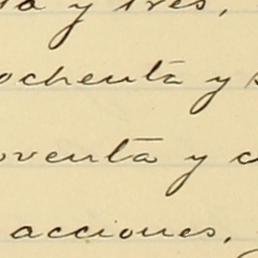 y tres,
ochenta y
noventa y
acciones,